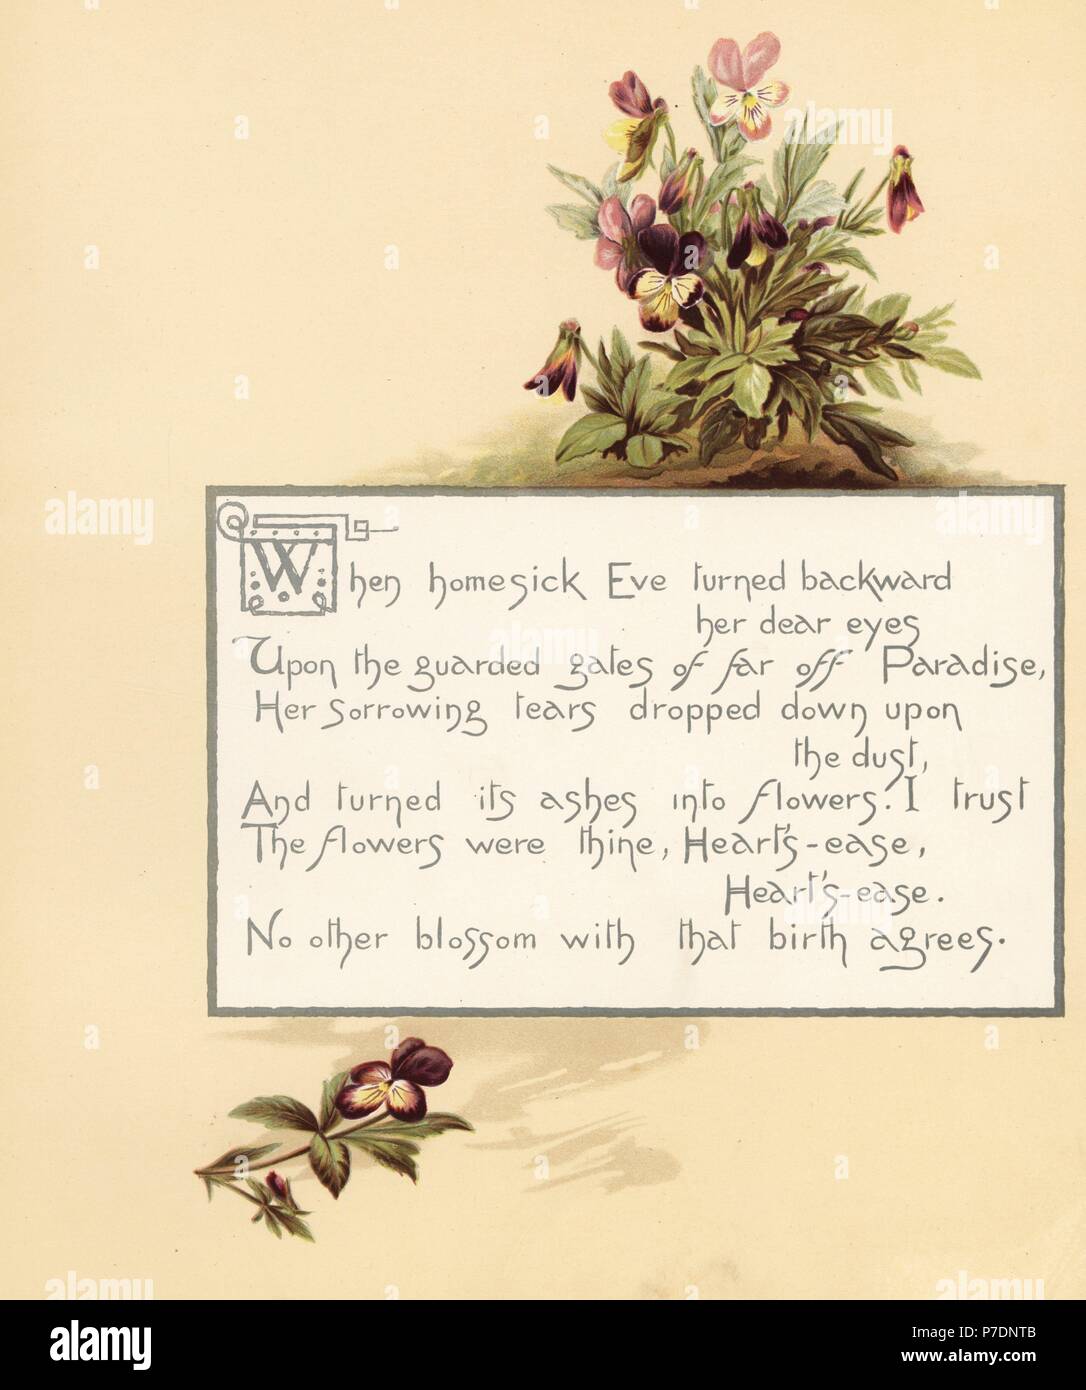 When homesick Eve turned backward
her dear eyes
Upon the guarded gates of far off Paradise,
Her sorrowing tears dropped down upon
the dust,
And turned its ashes into flowers. I trust
The flowers were thine, Heart's-ease,
Heart's-ease.
No other blossom with that birth agrees.
alamy
alamy
Image ID: P7DNTB
www.alamy.com